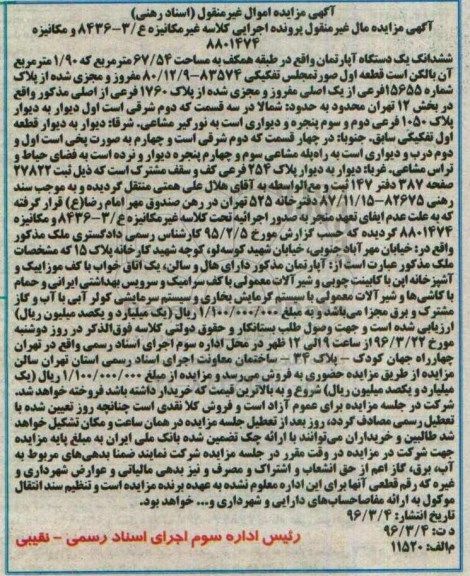 آگهی مزایده اموال غیرمنقول (اسناد رهنی)
آگهی مزایده مال غیرمنقول پرونده اجرایی کلاسه غیرمکانیزه ع/۳-۸۴۳۶ و مکانیزه
۸۸۰۱۴۷۴
ششدانگ یک دستگاه آپارتمان واقع در طبقه همکف به مساحت ۶۷/۵۴ مترمربع که ۱/۹۰ مترمربع
آن بالکن است قطعه اول صورتمجلس تفکیکی ۸۳۵۷۴-۸۰/۱۲/۹ مفروز و مجزی شده از پلاک
شماره ۱۵۶۵۵ فرعی از یک اصلی مفروز و مجزی شده از پلاک ۱۷۶۰ فرعی از اصلی مذکور واقع
در بخش ۱۲ تهران محدود به حدود: شمالا در سه قسمت که دوم شرقی است اول دیوار به دیوار
پلاک ۱۰۵۰ فرعی دوم و سوم پنجره و دیواری است به نورگیر مشاعی. شرقا: دیوار به دیوار قطعه
اول تفکیکی سابق. جنوبا: در چهار قسمت که دوم شرقی است و چهارم به صورت پخی است اول و
دوم درب و دیواری است به راه‌پله مشاعی سوم و چهارم پنجره دیوار و نرده است به فضای حیاط و
تراس مشاعی. غربا: دیوار به دیوار پلاک ۲۵۴ فرعی کف و سقف مشترک است که ذیل ثبت ۲۷۸۲۲
صفحه ۳۸۷ دفتر ۱۴۷ ثبت و مع‌الواسطه به آقای هلال علی همتی منتقل گردیده و به موجب سند
رهنی ۸۲۶۷۵-۸۷/۱۱/۱۵ دفترخانه ۵۲۵ تهران در رهن صندوق مهر امام رضا(ع) قرار گرفته
که به علت عدم ایفای تعهد منجر به صدور اجرائیه تحت کلاسه غیرمکانیزه ع/۳-۸۴۳۶ و مکانیزه
۸۸۰۱۴۷۴ گردیده که حسب گزارش مورخ ۹۵/۲/۵ کارشناس رسمی دادگستری ملک مذکور
واقع در: خیابان مهرآباد جنوبی، خیابان شهید کوسه‌لو، کوچه شهید کارخانه پلاک ۱۵ که مشخصات
ملک مذکور عبارت است از: آپارتمان مذکور دارای هال و سالن، یک اتاق خواب با کف موزاییک و
آشپزخانه اپن با کابینت چوبی و شیرآلات معمولی با کف سرامیک و سرویس بهداشتی ایرانی و حمام
با کاشی‌ها و شیرآلات معمولی با سیستم گرمایش بخاری و سیستم سرمایشی کولر آبی با آب و گاز
مشترک و برق مجزا می‌باشد و به مبلغ ۱/۱۰۰/۰۰۰/۰۰۰ ریال (یک میلیارد و یکصد میلیون ریال)
ارزیابی شده است و جهت وصول طلب بستانکار و حقوق دولتی کلاسه فوق‌الذکر در روز دوشنبه
مورخ ۹۶/۳/۲۲ از ساعت ۹ الی ۱۲ ظهر در محل اداره سوم اجرای اسناد رسمی واقع در تهران
چهارراه جهان کودک – پلاک ۳۴ – ساختمان معاونت اجرای اسناد رسمی استان تهران سالن
مزایده از طریق مزایده حضوری به فروش می‌رسد و مزایده از مبلغ ۱/۱۰۰/۰۰۰/۰۰۰ ریال (یک
میلیارد و یکصد میلیون ریال) شروع و به بالاترین قیمت که خریدار داشته باشد فروخته خواهد شد.
شرکت در جلسه مزایده برای عموم آزاد است و فروش کلا نقدی است چنانچه روز تعیین شده با
تعطیل رسمی مصادف گردد، روز بعد از تعطیل جلسه مزایده در همان ساعت و مکان تشکیل خواهد
شد طالبین و خریداران می‌توانند با ارائه چک تضمین شده بانک ملی ایران به مبلغ پایه مزایده
جهت شرکت در مزایده در وقت مقرر در جلسه مزایده شرکت نمایند ضمنا بدهی‌های مربوط به
آب، برق، گاز اعم از حق انشعاب و اشتراک و مصرف و نیز بدهی مالیاتی و عوارض شهرداری و
غیره که رقم قطعی آنها برای این اداره معلوم نشده به عهده برنده مزایده است و تنظیم سند انتقال
موکول به ارائه مفاصاحساب‌های دارایی و شهرداری و... خواهد بود.
تاریخ انتشار: ۹۶/۳/۴
د ت: ۹۶/۳/۴
م‌الف: ۱۱۵۲۰
رئیس اداره سوم اجرای اسناد رسمی – نقیبی